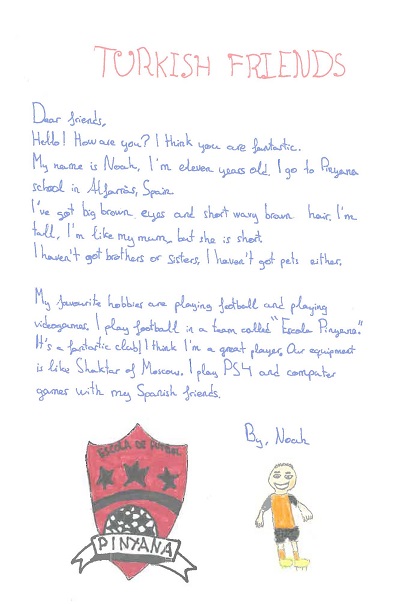 TURKISH FRIENDS
Dear friends,
Hello! How are you? I think you are fantastic.
My name is Noah, I'm eleven years old. I go to Pinyana
school in Alfarràs, Spain.
I've got big brown eyes and short wavy brown hair. I'm
tall, I'm like my mum, but she is short.
I haven't got brothers or sisters, I haven't got pets either.
My favourite hobbies are playing football and playing
videogames. I play football in a team called "Escola Pinyana".
It's a fantastic club! I think I'm a great player. Our equipment
is like Shaktar of Moscow. I play PS4 and computer
games with my Spanish friends.
By, Noah
ESCOLA DE FUTBOL
PINYANA